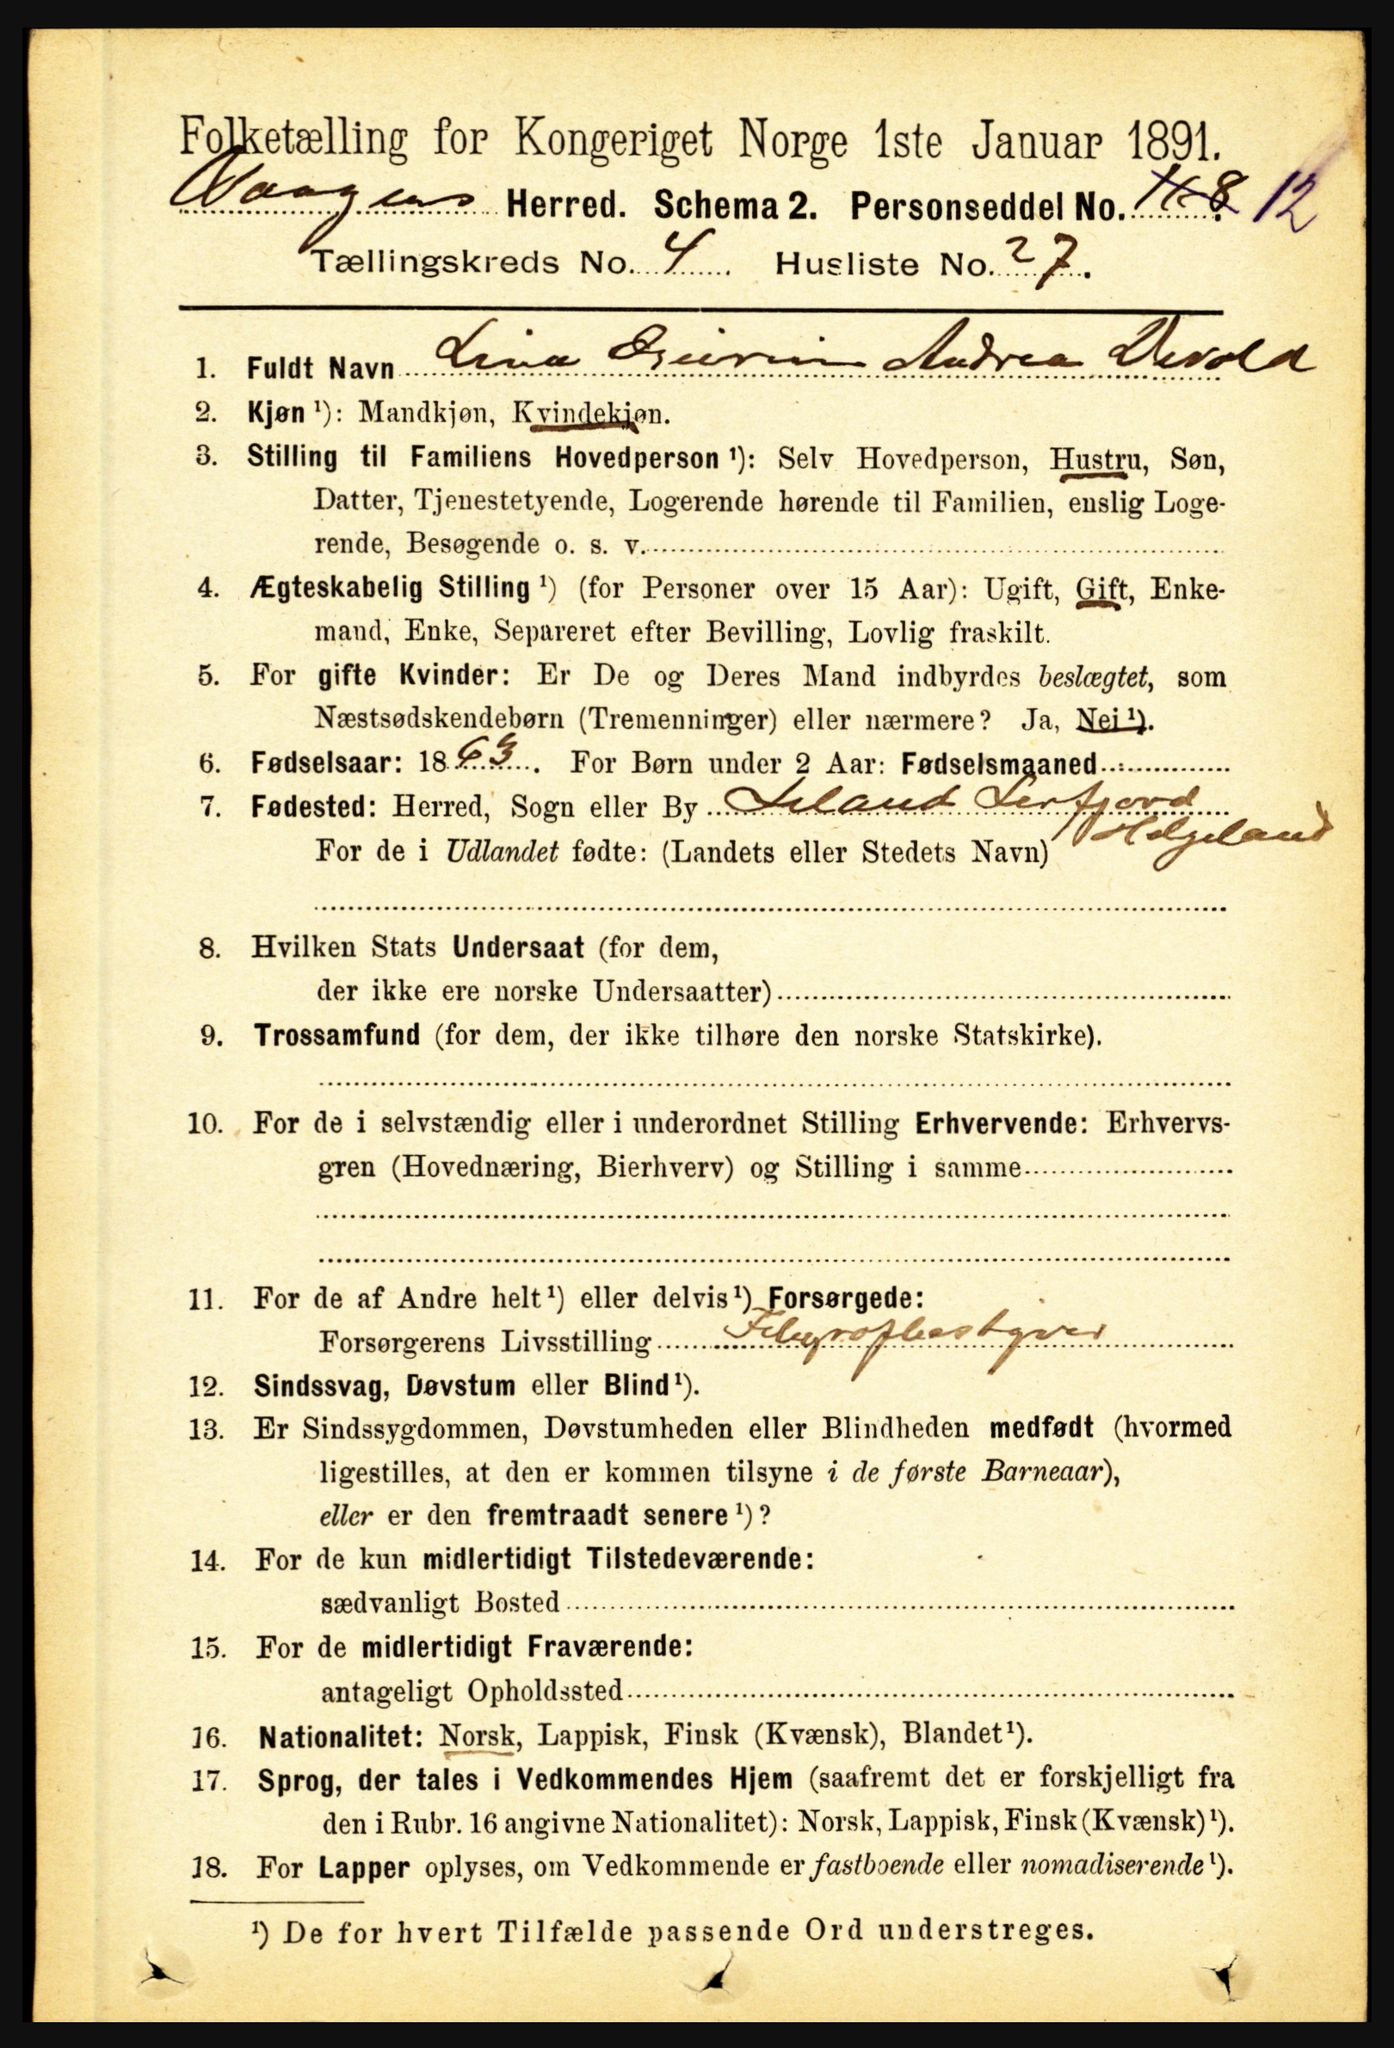 Folketælling for Kongeriget Norge 1ste Januar 1891.
Vaagens Herred. Schema 2. Personseddel No. 12
Tællingskreds No. 4 Husliste No. 27.
1. Fuldt Navn Lina Andrea Devold
2. Kjøn ¹): Mandkjøn, Kvindekjøn.
3. Stilling til Familiens Hovedperson ¹): Selv Hovedperson, Hustru, Søn,
Datter, Tjenestetyende, Logerende hørende til Familien, enslig Loge-
rende, Besøgende o. s. v.
4. Ægteskabelig Stilling ¹) (for Personer over 15 Aar): Ugift, Gift, Enke-
mand, Enke, Separeret efter Bevilling, Lovlig fraskilt.
5. For gifte Kvinder: Er De og Deres Mand indbyrdes beslægtet, som
Næstsødskendebørn (Tremenninger) eller nærmere? Ja, Nei ¹).
6. Fødselsaar: 1863. For Børn under 2 Aar: Fødselsmaaned
7. Fødested: Herred, Sogn eller By Leland Leirfjord
Helgeland
For de i Udlandet fødte: (Landets eller Stedets Navn)
8. Hvilken Stats Undersaat (for dem,
der ikke ere norske Undersaatter)
9. Trossamfund (for dem, der ikke tilhøre den norske Statskirke).
10. For de i selvstændig eller i underordnet Stilling Erhvervende: Erhvervs-
gren (Hovednæring, Bierhverv) og Stilling i samme
11. For de af Andre helt ¹) eller delvis ¹) Forsørgede:
Forsørgerens Livsstilling Telegrafbestyrer
12. Sindssvag, Døvstum eller Blind ¹).
13. Er Sindssygdommen, Døvstumheden eller Blindheden medfødt (hvormed
ligestilles, at den er kommen tilsyne i de første Barneaar),
eller er den fremtraadt senere ¹)?
14. For de kun midlertidigt Tilstedeværende:
sædvanligt Bosted
15. For de midlertidigt Fraværende:
antageligt Opholdssted
16. Nationalitet: Norsk, Lappisk, Finsk (Kvænsk), Blandet ¹).
17. Sprog, der tales i Vedkommendes Hjem (saafremt det er forskjelligt fra
den i Rubr. 16 angivne Nationalitet): Norsk, Lappisk, Finsk (Kvænsk) ¹).
18. For Lapper oplyses, om Vedkommende er fastboende eller nomadiserende ¹).
¹) De for hvert Tilfælde passende Ord understreges.